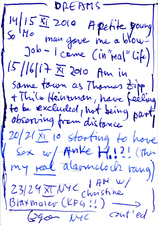 DREAMS
14/15 XI 2010 A petite young
man gave me a blow-
job - I came (in "real" life)
15/16/17 XI 2010 Am in
same town as Thomas Zipp
+ Thilo Heinzman, have feeling
to be excluded, not being part,
observing from distance
20/21 XI 10 starting to have
sex w/ Anke H..?! (Then
my real alarmclock rang)
23/24 XI NYC I AM w/
Christine
(KFG!!)
NYC cont'ed